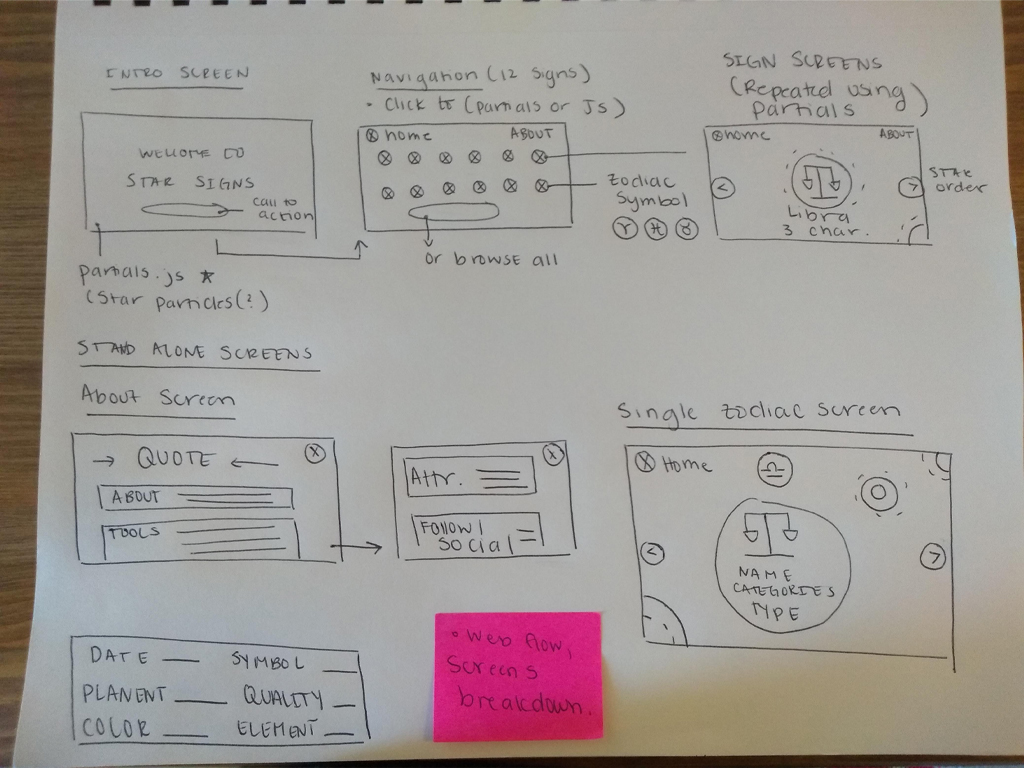 INTRO SCREEN
WELLOME TO
STAR SIGNS
CALL TO
ACTION
partials.js *
(Star particles(?)
Navigation (12 signs)
• Click to (partials or Js)
home ABOUT
Zodiac
Symbol
♈ ♓ ♉
or browse all
SIGN SCREENS
(Repeated using
partials)
home ABOUT
< >
Libra
3 char.
STAR
order
STAND ALONE SCREENS
About Screen
→ QUOTE ← X
ABOUT
TOOLS
X
Attr.
FOLLOW/
SOCIAL
Single Zodiac Screen
X Home ♎
< >
NAME
CATEGORIES
TYPE
DATE SYMBOL
PLANENT QUALITY
COLOR ELEMENT
• Web flow,
Screens
breakdown.